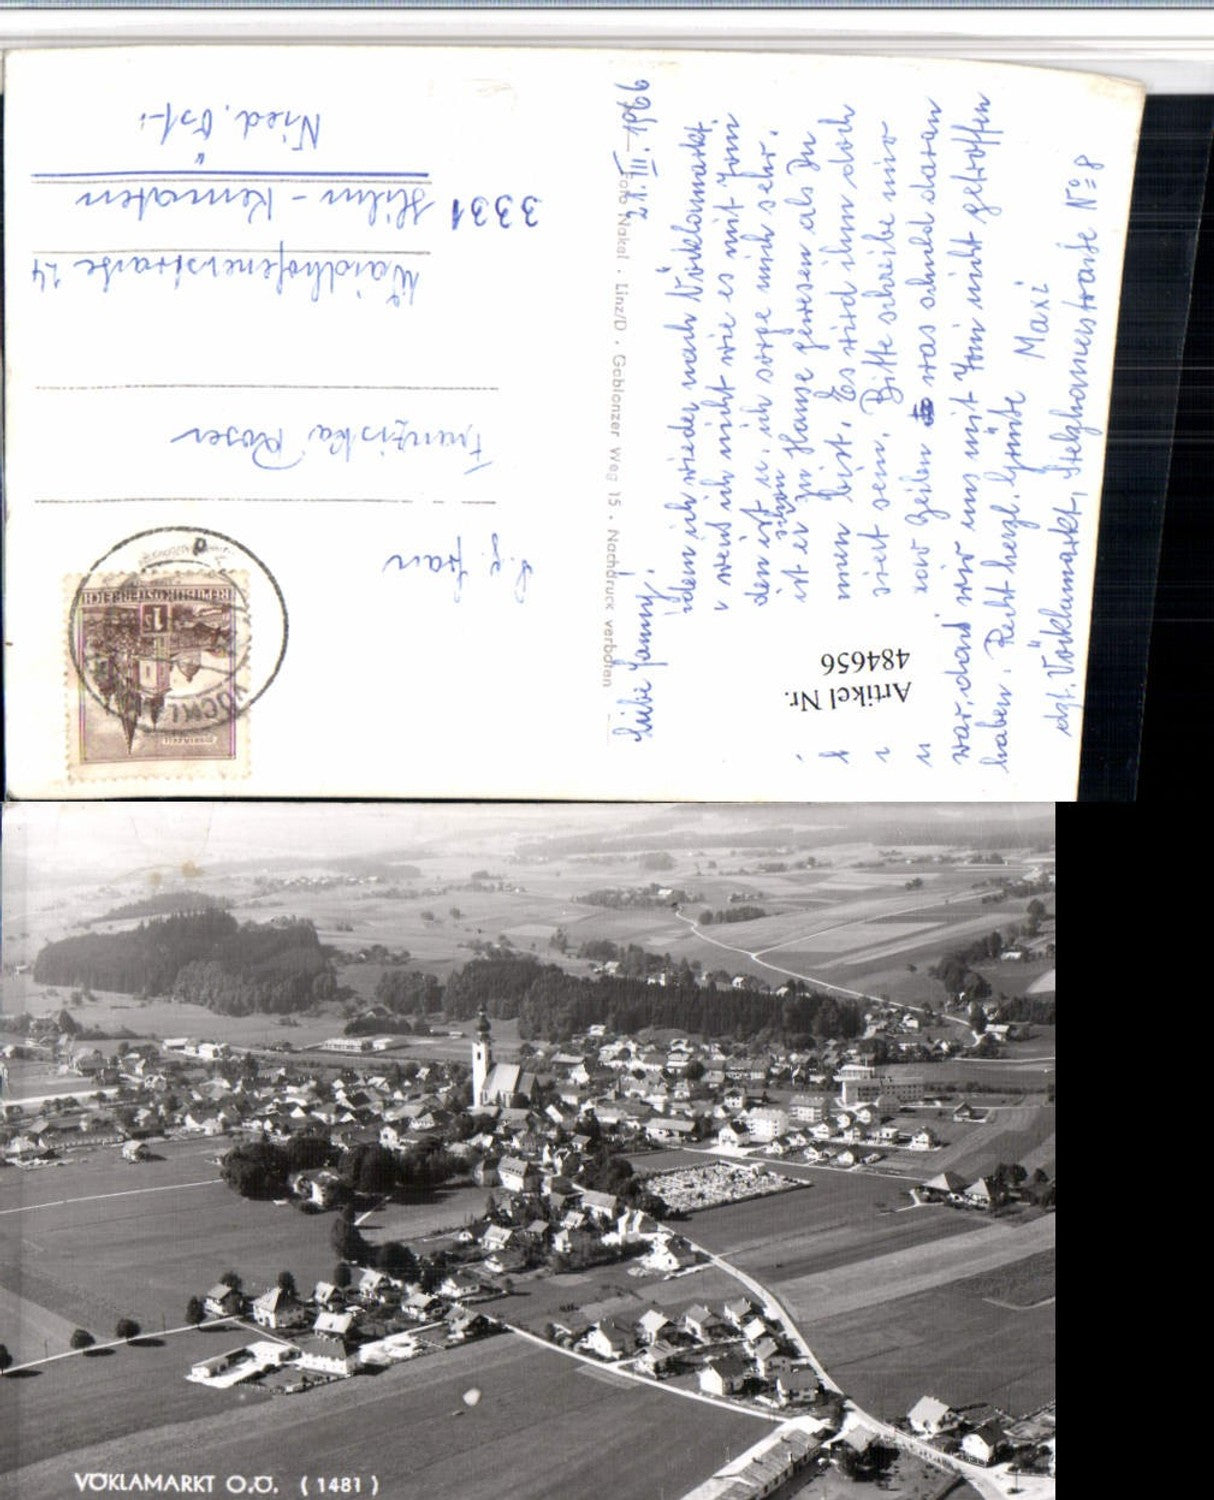 Liebe Fanny!
21. III. 1966
indem ich wieder nach Vöcklamarkt
werd ich nicht wie es mit Toni
den ist u. ich sorge mich sehr.
ist er schon zu Hause gewesen als Du
men bist. Es wird ihm doch
siert sein. Bitte schreibe mir
Zeilen was schuld daran
war, das wir uns mit Toni nicht getroffen
haben. Recht herzl. Grüße Maxi
dzt. Vöcklamarkt, Stelzhamerstraße No 8
Foto Nakel · Linz/D · Gablonzer Weg 15 · Nachdruck verboten
S. g. Frau
Franziska Roser
Waidhofenerstraße 24
3331 Hilm - Kematen
Nied. Öst.
REPUBLIK ÖSTERREICH
1
Artikel Nr.
484656
VÖKLAMARKT O.Ö. ( 1481 )